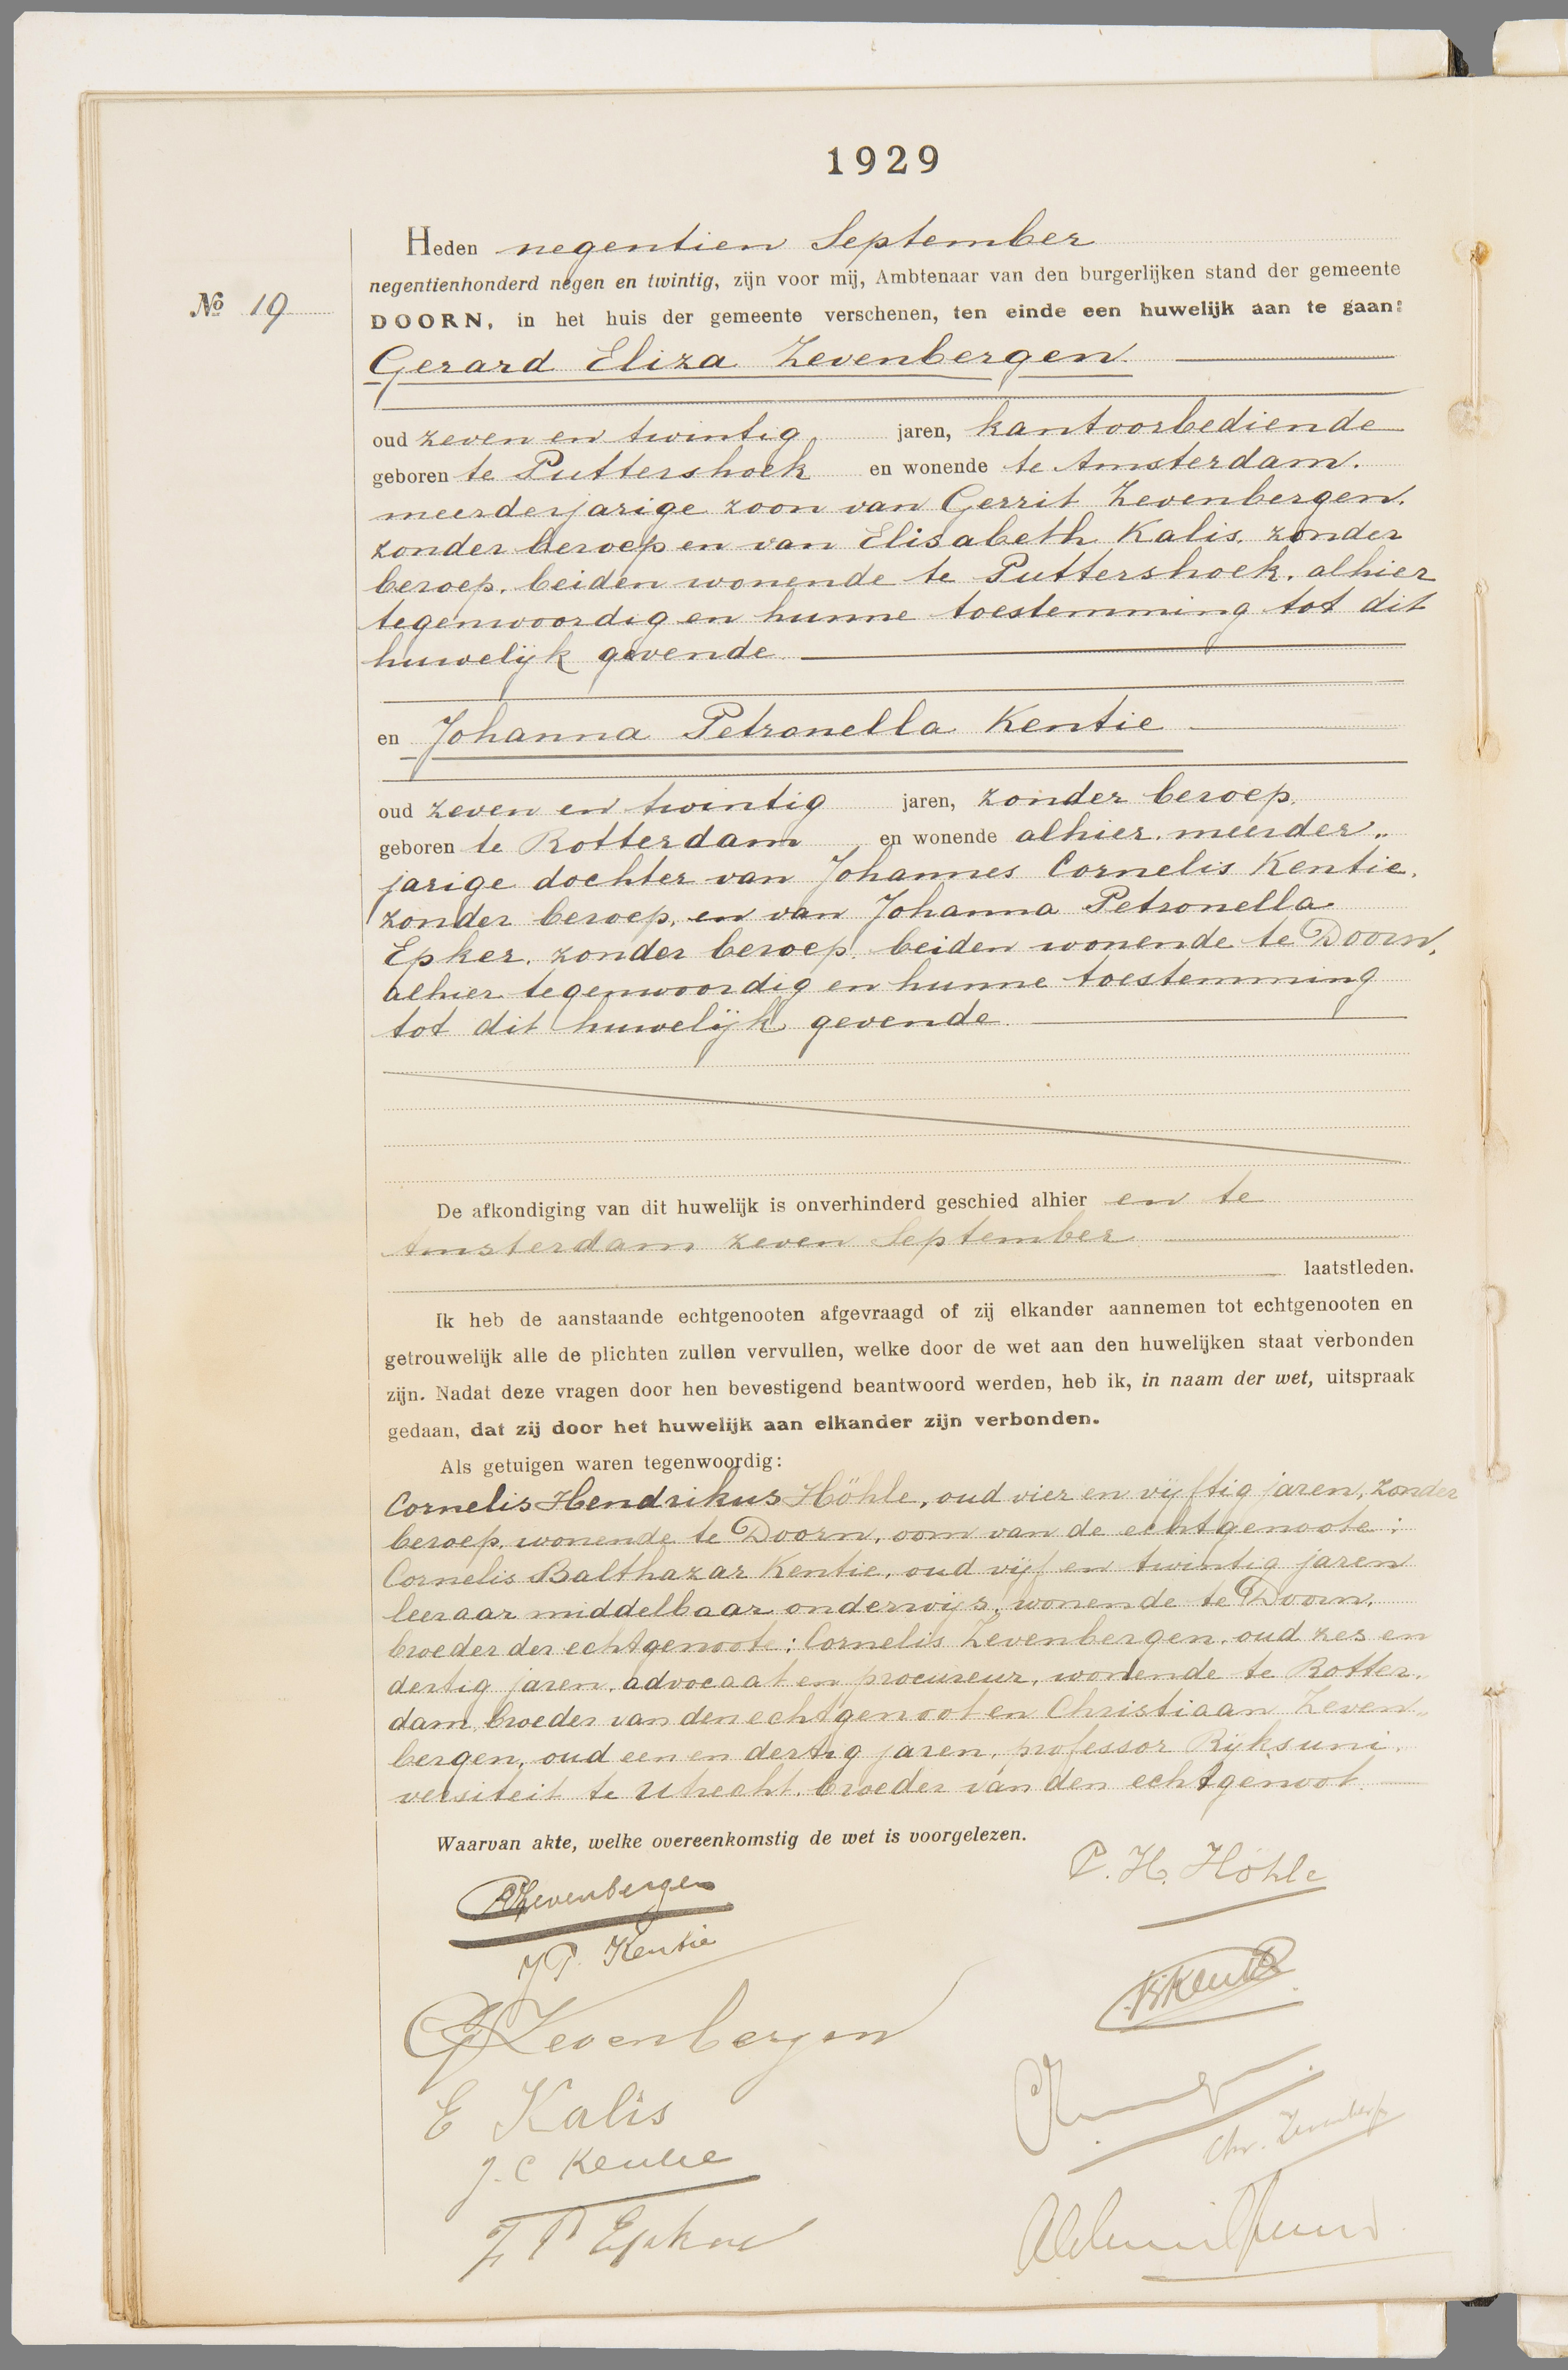 1929
Heden negentien September
negentienhonderd negen en twintig, zijn voor mij, Ambtenaar van den burgerlijken stand der gemeente
No 19
DOORN, in het huis der gemeente verschenen, ten einde een huwelijk aan te gaan:
Gerard Eliza Zevenbergen.
oud zeven en twintig jaren, kantoorbediende
geboren te Puttershoek en wonende te Amsterdam.
meerderjarige zoon van Gerrit Zevenbergen.
zonder beroep en van Elisabeth Kalis. zonder
beroep. beiden wonende te Puttershoek. alhier
tegenwoordig en hunne toestemming tot dit
huwelijk gevende.
en Johanna Petronella Kentie
oud zeven en twintig jaren, zonder beroep.
geboren te Rotterdam en wonende alhier. meerder„
jarige dochter van Johannes Cornelis Kentie.
zonder beroep. en van Johanna Petronella
Epker. zonder beroep. beiden wonende te Doorn.
alhier tegenwoordig en hunne toestemming
tot dit huwelijk gevende.
De afkondiging van dit huwelijk is onverhinderd geschied alhier en te
Amsterdam zeven September
laatstleden.
Ik heb de aanstaande echtgenooten afgevraagd of zij elkander aannemen tot echtgenooten en
getrouwelijk alle de plichten zullen vervullen, welke door de wet aan den huwelijken staat verbonden
zijn. Nadat deze vragen door hen bevestigend beantwoord werden, heb ik, in naam der wet, uitspraak
gedaan, dat zij door het huwelijk aan elkander zijn verbonden.
Als getuigen waren tegenwoordig:
Cornelis Hendrikus Höhle, oud vier en vijftig jaren, zonder
beroep. wonende te Doorn. oom van de echtgenoote;
Cornelis Balthazar Kentie. oud vijf en twintig jaren
leeraar middelbaar onderwijs. wonende te Doorn.
broeder der echtgenoote; Cornelis Zevenbergen. oud zes en
dertig jaren. advocaat en procureur, wonende te Rotter.
dam, broeder van den echtgenoot en Christiaan Zeven„
bergen, oud een en dertig jaren, professor Rijksuni.
versiteit te Utrecht. broeder van den echtgenoot.
Waarvan akte, welke overeenkomstig de wet is voorgelezen.
Zevenbergen
C. H. Höhle
J P. Kentie
Kentie
G Zevenbergen
E Kalis
Chr. Zevenbergen
J. C Kentie
J P Epker